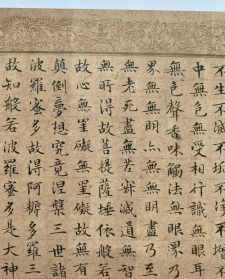 不生不滅不垢不淨不增
中無色無受想行識無眼耳
無色聲香味觸法無眼界乃
界無無明亦無無明盡乃至
無老死盡無苦集滅道無智
無所得故菩提薩埵依般若
故心無罣礙無罣礙故無有
顛倒夢想究竟涅槃三世諸
波羅蜜多故得阿耨多羅三
故知般若波羅蜜多是大神